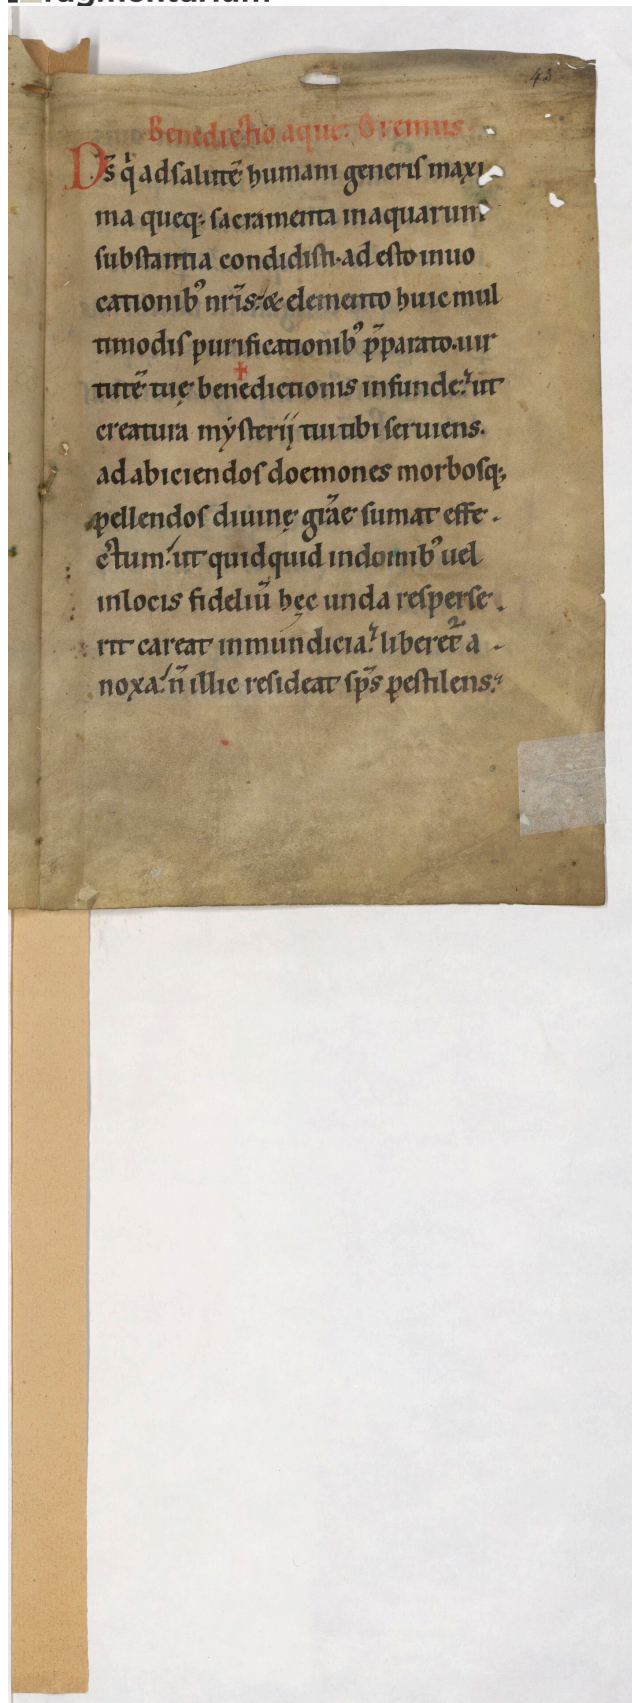 43
Benedictio aque. Oremus.
Ds̄ q̇ ad salutē humani generis maxi
ma queq; sacramenta in aquarum
substantia condidisti. ad esto inuo
cationibꝰ nrīs. & elemento huic mul
timodis purificationibꝰ p̄parato. uir
tutē tuę bene✝dictionis infunde. ut
creatura mẏsterij tui tibi seruiens.
ad abiciendos doemones morbosq;
pellendos diuinę grāe sumat effe .
ctum. ut quidquid in domibꝰ uel
in locis fideliū hęc unda resperse .
rit careat inmundicia. liberet᷑ a .
noxa. n̄ illic resideat sps̄ pestilens.